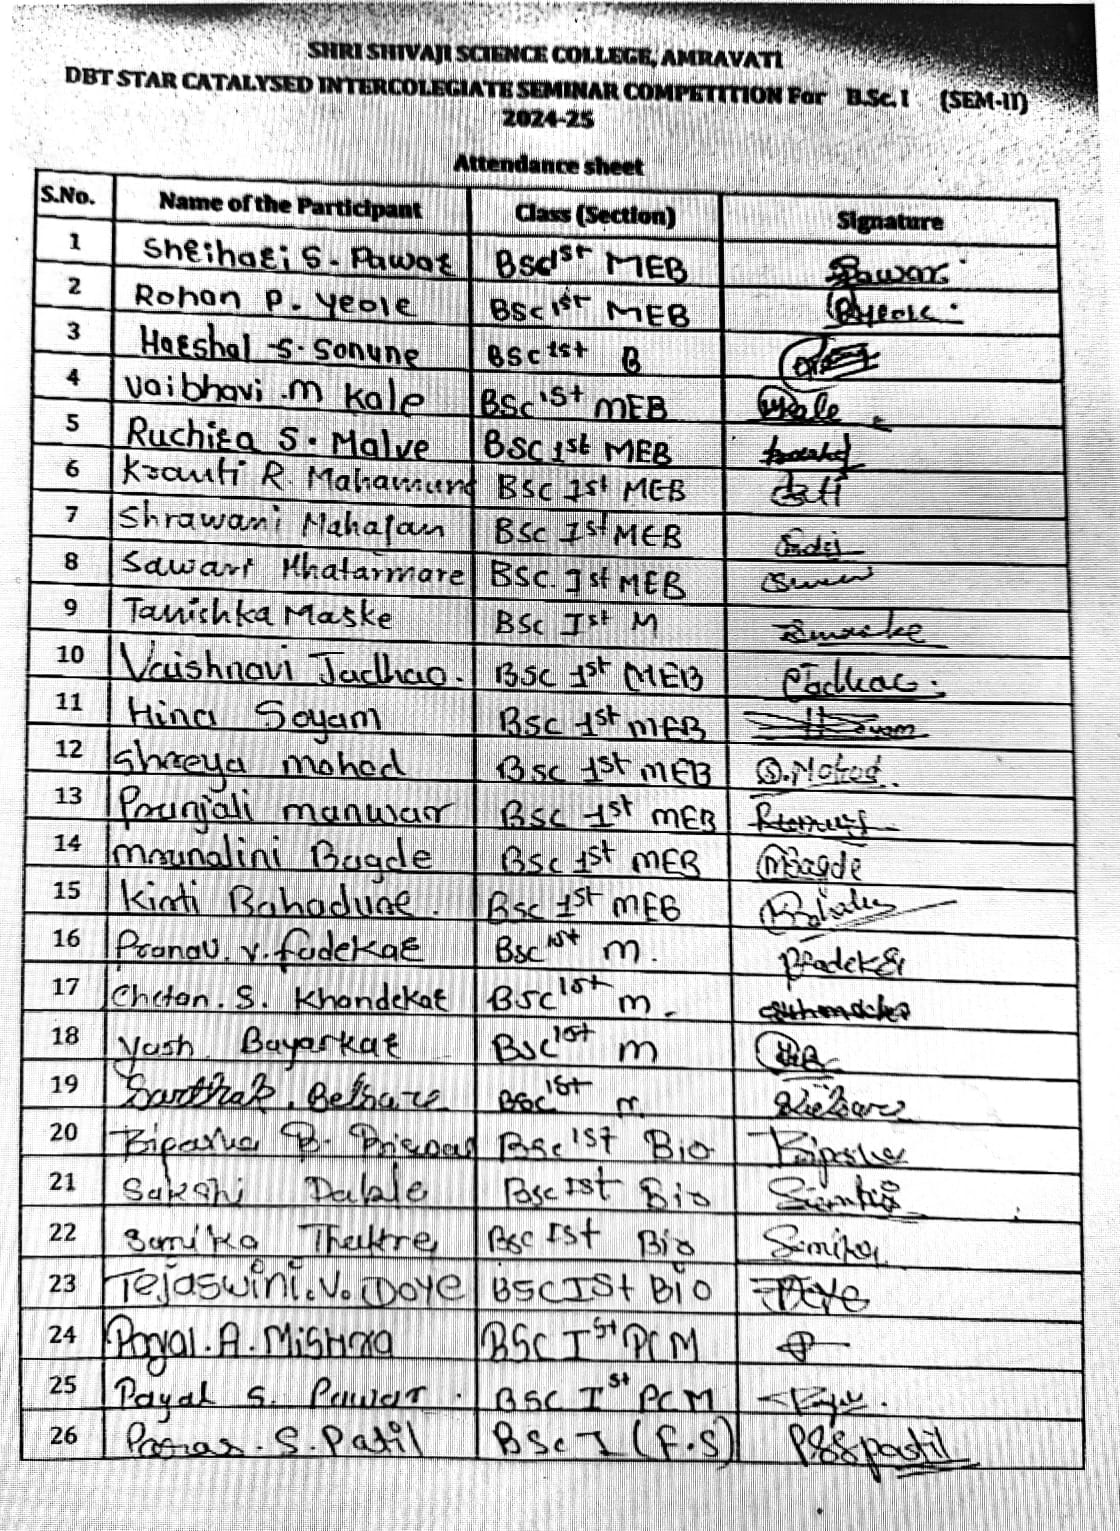 SHRI SHIVAJI SCIENCE COLLEGE, AMRAVATI
DBT STAR CATALYSED INTERCOLEGIATE SEMINAR COMPETITION For B.Sc. I (SEM-II)
2024-25
Attendance sheet
S.No. Name of the Participant Class (Section) Signature
1 Sheihari S. Pawar BSc 1st MEB Pawar
2 Rohan P. Yeole BSc 1st MEB PYeole.
3 Harshal S. Sonune BSc 1st B
4 Vaibhavi .M Kale BSc 1st MEB Kale
5 Ruchita S. Malve BSc 1st MEB
6 Kranti R. Mahamune BSc 1st MEB
7 Shrawani Mahajan BSc Ist MEB
8 Sawari Khatarmare BSc. Ist MEB
9 Tanishka Maske BSc Ist M
10 Vaishnavi Jadhao. BSC 1st MEB Jadhao.
11 Hina Soyam BSc 1st MEB
12 Shreeya mohod BSc 1st MEB S. Mohod.
13 Prunjali manwar BSc 1st MEB
14 Mrunalini Bagde BSc 1st MEB MBagde
15 Kirti Bahadure. BSc 1st MEB
16 Pranav. V. fadekar BSc 1st M. Pfadekar
17 Chetan. S. Khandekar BSc 1st M.
18 Yash Bayaskar BSc 1st M
19 Sarthak. Belsare BSc 1st M.
20 Bipasha B. BSc 1st Bio Bipasha
21 Sakshi Dable BSc Ist Bio
22 Samika Thakre BSc Ist Bio Samika
23 Tejaswini. V. Doye BSC ISt Bio Doye
24 Payal. A. Mishra BSC Ist PCM
25 Payal S. Pawar. BSC Ist PCM
26 Paras. S. Patil BSc I (F.S) PSSpatil